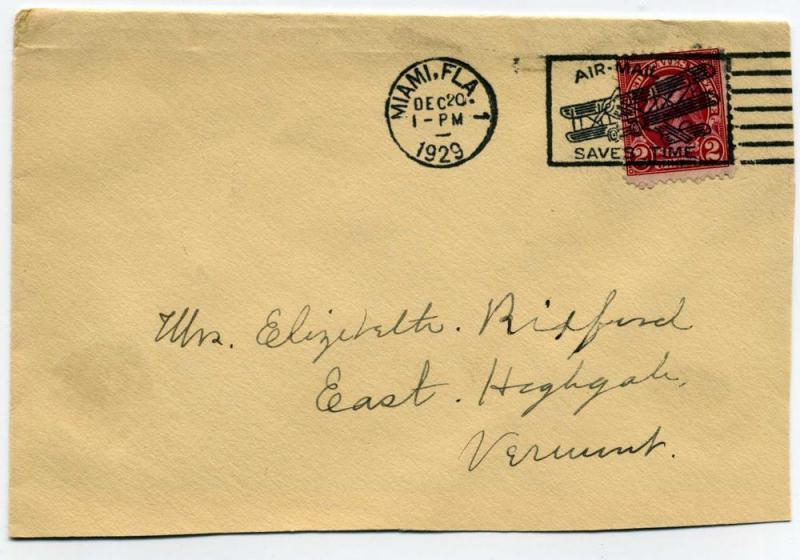 MIAMI, FLA. 1
DEC 20.
1-PM
1929
AIR-MAIL
SAVES TIME
2 2
Mrs. Elizabeth. Bixford
East. Highgate,
Vermont.